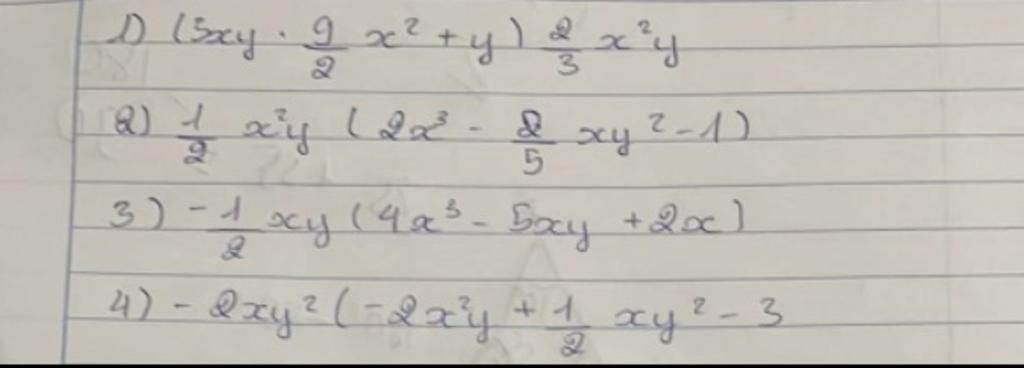 1) (3xy · 9/2 x² + y) 2/3 x²y
2) 1/2 x²y (2x³ - 2/5 xy² - 1)
3) -1/2 xy (4x³ - 5xy + 2x)
4) - 2xy² (-2x²y + 1/2 xy² - 3